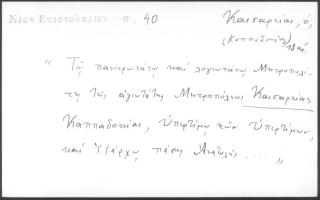 Νέον Ἐπιστολάριον σ. 40
Καισαρείας, ὁ,
(Καππαδοκίας)
18 αἰ.
"Τῷ πανιερωτάτῳ καὶ λογιωτάτῳ Μητροπολί-
τῃ τῆς ἁγιωτάτης Μητροπόλεως Καισαρείας
Καππαδοκίας, ὑπερτίμῳ τῶν ὑπερτίμων,
καὶ ἐξάρχῳ πάσης Ἀνατολῆς ....."